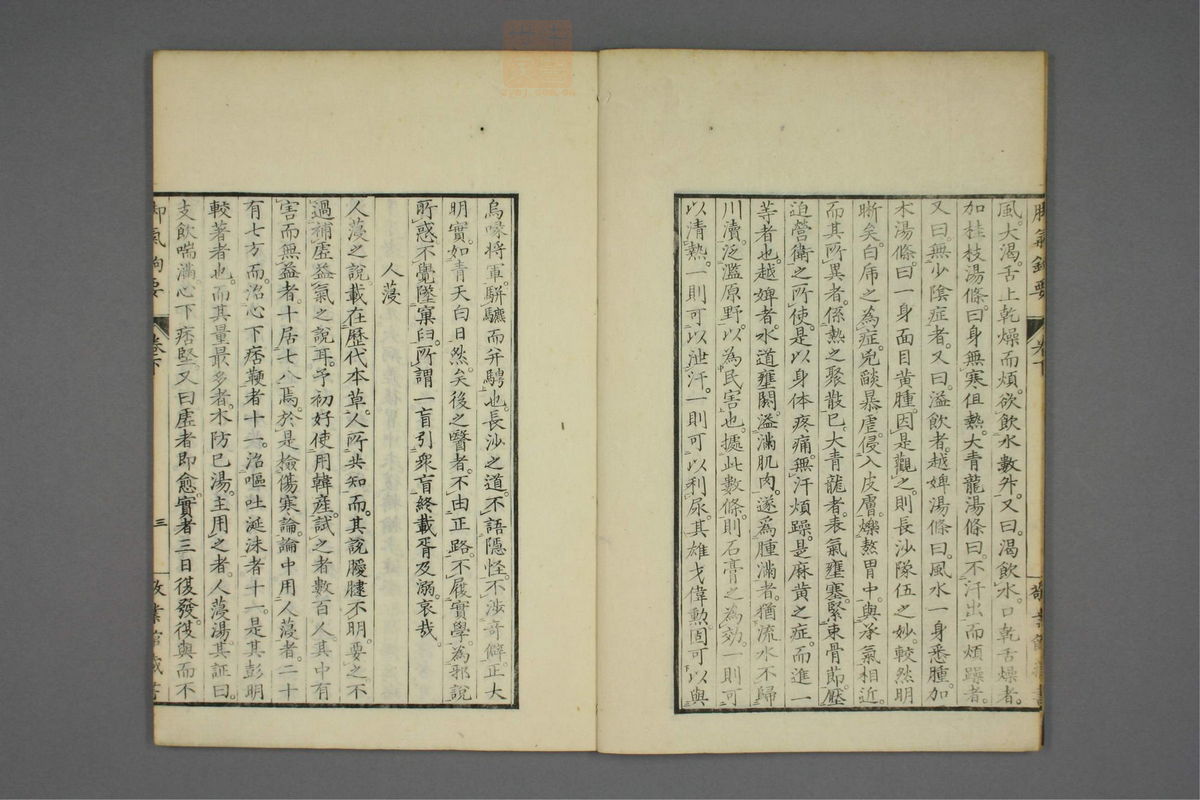 脚氣鉤要　卷下
風。大渴。舌上乾燥而煩。欲飲水數升。又曰。渴飲水。口乾舌燥者。
加桂枝湯條曰。身無寒但熱。大青龍湯條曰。不汗出而煩躁者。
又曰。無少陰症者。又曰。溢飲者。越婢湯條曰。風水一身悉腫。加
朮湯條曰。一身面目黃腫。因是觀之。則長沙隊伍之妙。較然明
晰矣。白帍之為症。兇燄暴虐。侵入皮膚。爍熬胃中。與承氣相近。
而其所異者。係熱之聚散已。大青龍者。表氣壅塞。緊束骨節。壓
迫營衛之所使。是以身体疼痛。無汗煩躁。是麻黃之症。而進一
等者也。越婢者。水道壅閼。溢滿肌肉。遂為腫滿者。猶流水不歸
川瀆。泛濫原野。以為民害也。據此數條。則石膏之為効。一則可
以清熱。一則可以泄汗。一則可以利尿。其雄才偉勲。固可以與
烏喙將軍。駢驪而并騁也。長沙之道。不語隱怪。不涉奇僻。正大
明實。如青天白日然。矣後之醫者。不由正路。不履實學。為邪說
所惑。不覺墜窠臼。所謂一盲引衆盲。終載胥及溺。哀哉。
人蓡
人蓡之說。載在歷代本草。人所共知。而其說曖昧不明。要之不
過補虛益氣之說耳。予初好使用韓產。試之者數百人。其中有
害而無益者。十居七八焉。於是檢傷寒論。論中用人蓡者。二十
有七方。而治心下痞鞕者十一。治嘔吐涎沫者十一。是其彭明
較著者也。而其量最多者。木防已湯。主用之者。人蓡湯。其証曰。
支飲喘滿。心下痞堅。又曰虛者即愈。實者三日復發。復與而不
脚氣鉤要　卷下　三